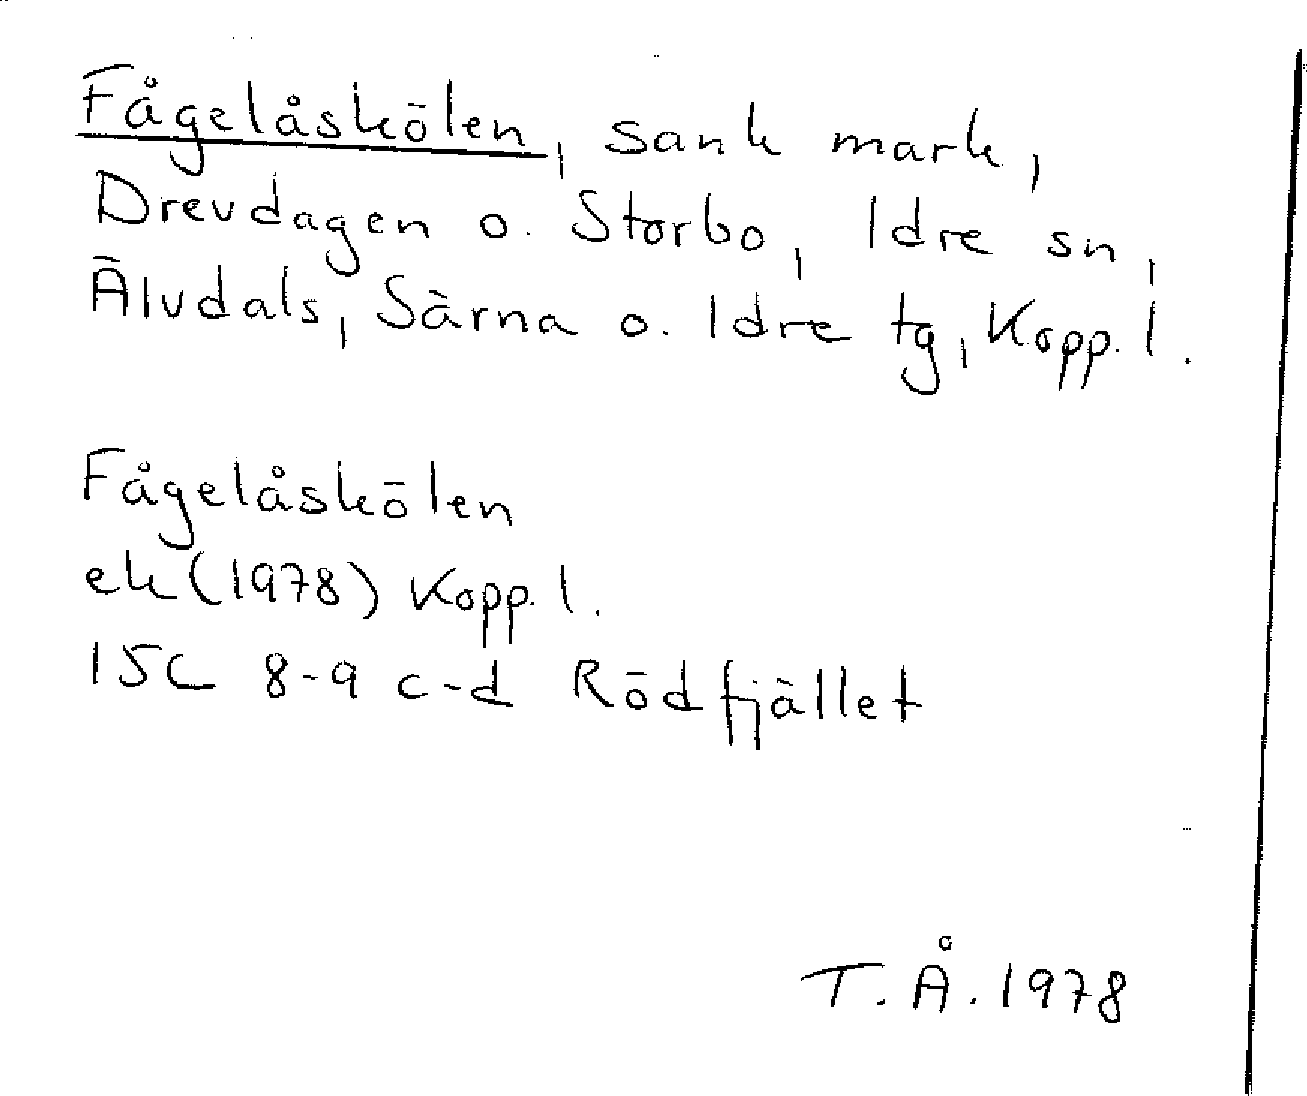 Fågelåskölen, sank mark,
Drevdagen o. Storbo, Idre sn,
Älvdals, Särna o. Idre tg, Kopp. l.
Fågelåskölen
ek (1978) Kopp. l.
15C 8-9 c-d Rödfjället
T. Å. 1978